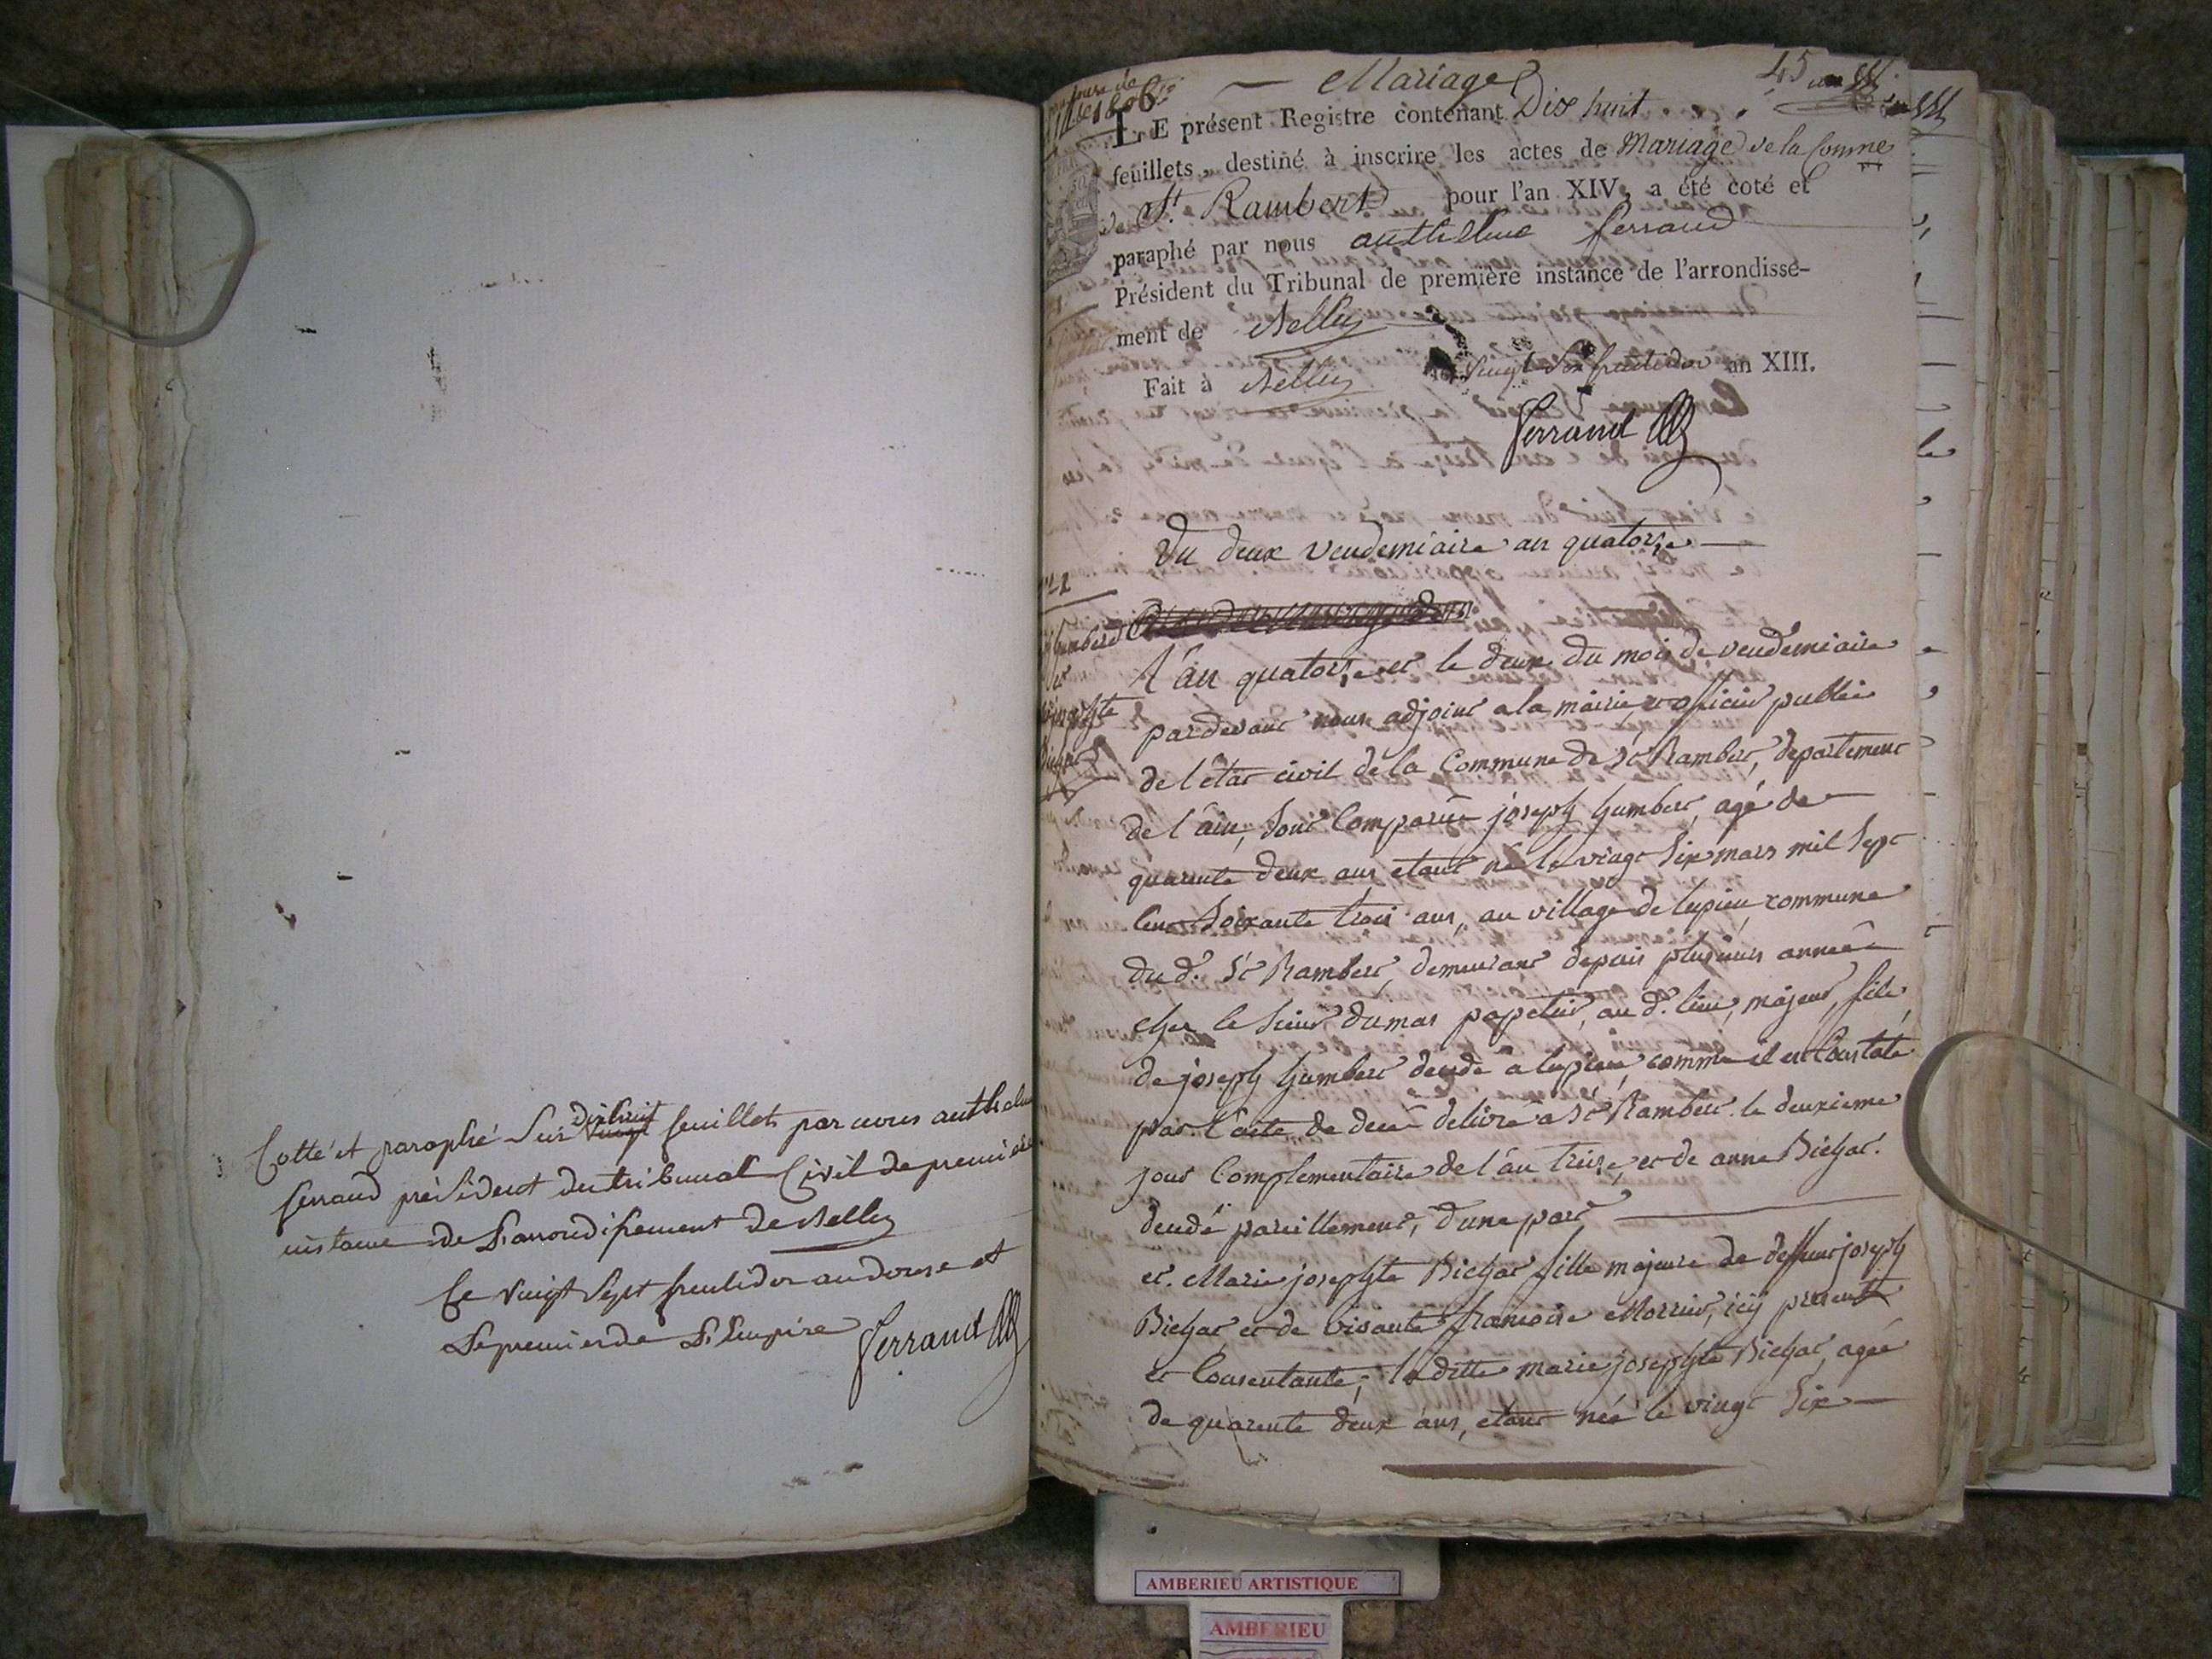 Cotté et paraphé sur dixhuit feuillets par nous anthelme
ferraud président du tribunal Civil de première
instance de L'arrondissement de Belley
Ce vingt Sept fructidor an douze et
Le premier de L'Empire Ferraud
Mariage
45
1806
LE présent Registre contenant Dix huit
feuillets, destiné à inscrire les actes de Mariage de la Comne
de St. Rambert pour l'an XIV, a été coté et
paraphé par nous anthelme ferraud
Président du Tribunal de première instance de l'arrondisse-
ment de Belley
Fait à Belley vingt Six fructidor an XIII.
Ferraud
Du deux vendemiaire an quatorze
humbert
josephte
Bichat
L'an quatorze et le deux du mois de vendemiaire
pardevant nous adjoint a la mairie, et officier public
de l'état civil de la Commune de St Rambert, departement
de l'ain, sont Comparus joseph humbert, agé de
quarante deux ans, etant né le vingt Six mars mil Sept
Cent Soixante trois ans, au village de lupieu, commune
du d. St Rambert, demeurant depuis plusieurs années
chez le Sieur dumas papetier, au d. lieu, majeur, fils
de joseph humbert décédé a lupieu, comme il est Constaté
par l'acte de décès délivré a St Rambert le deuxieme
jour Complementaire de l'an treize, et de anne Bichat.
décédé pareillement, d'une part
et Marie josephte Bichat fille majeure de deffunt joseph
Bichat et de vivante francoise Morrier, icy presente
et Consentante; la ditte marie josephte Bichat, agée
de quarente deux ans, etant née le vingt Six
AMBERIEU ARTISTIQUE
AMBERIEU